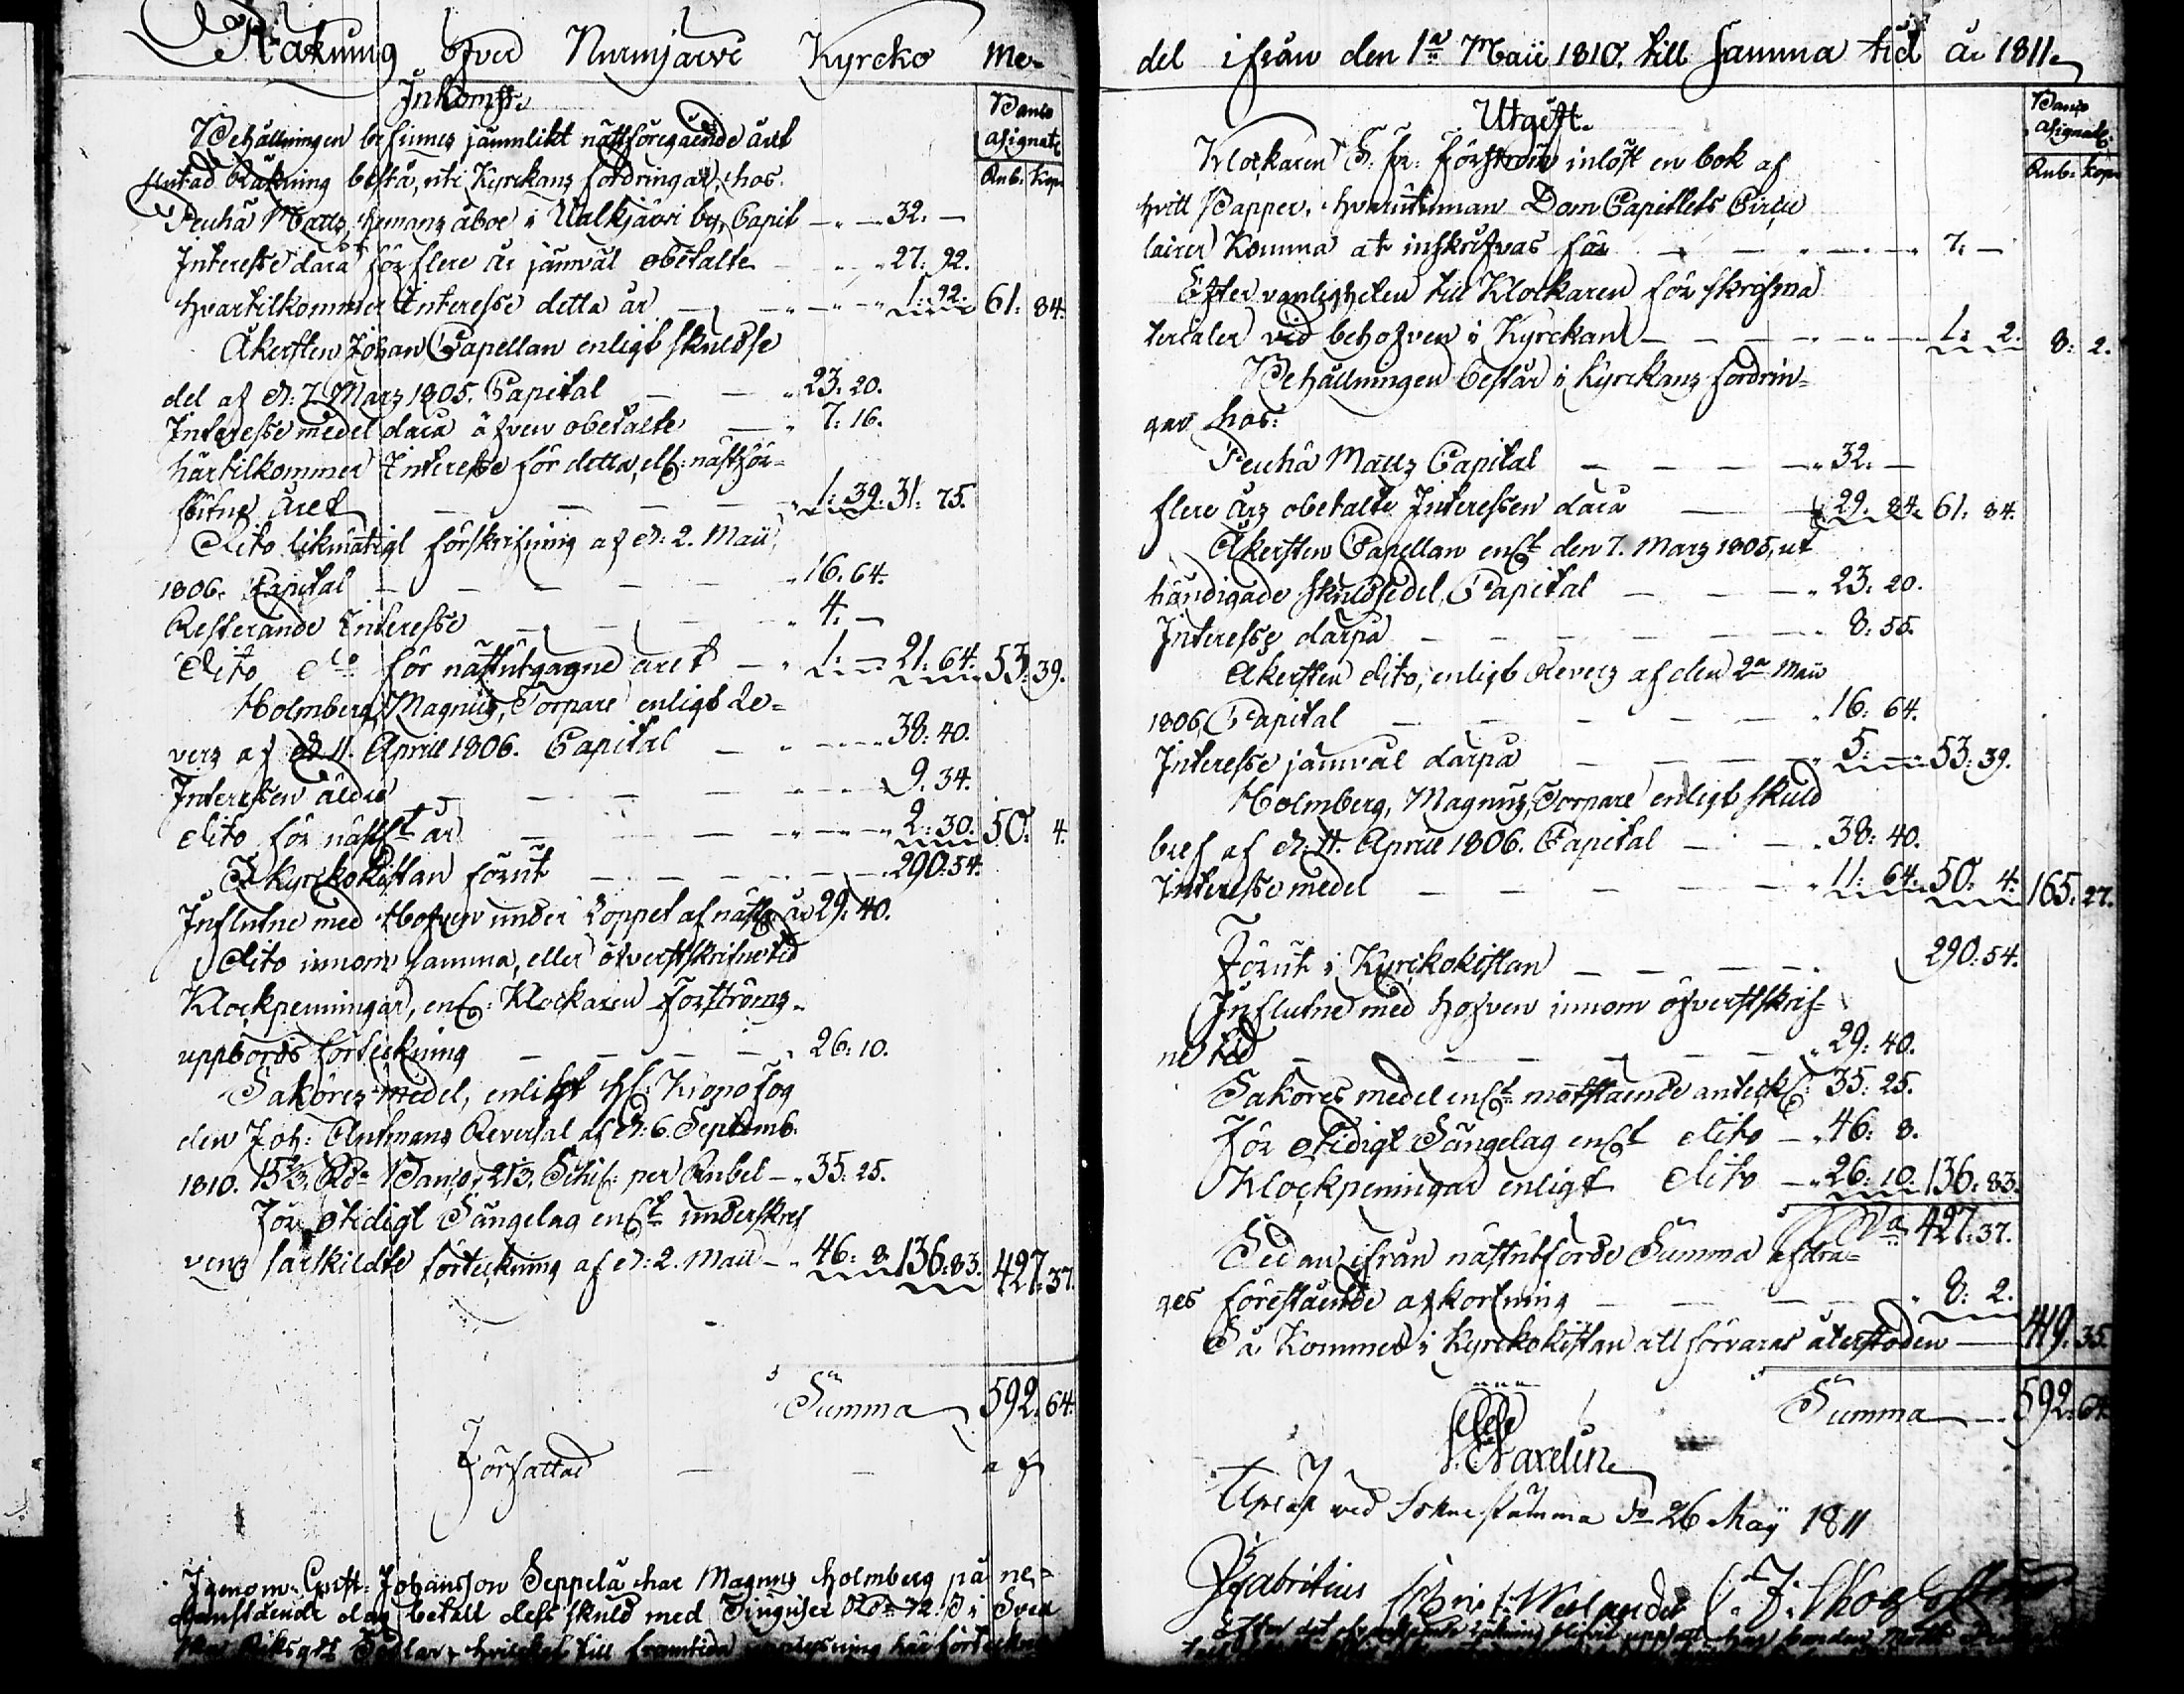 Räkning öfver Nurmijärvi Kyrcko me-
Inkomst.
Banco
Asignat:
Rub. Kop.
Behållningen befinnes jämnlikt nästföregående året
slutad Räkning bestå, uti Kyrckans fordringar, hos.
Peuhä Matts, hemans åboe i Valkjärvi by, Capit — 32. —
Interesse dära för flere år jämväl obetalte — 27: 92.
hvartilkommer Interesse detta år — 1: 92. 61. 84.
Åkersten Johan Capellan enligt skuldse
del af d: 7 Mars 1805. Capital — 23: 20.
Interesse medel dära äfven obetalte — 7: 16.
härtilkommer Interesse för detta, ell: nästför-
flutne året — 1: 39. 31: 75.
Dito likmätigt förskrifning af d: 2. Maii,
1806. Capital — 16. 64.
Resterande Interesse — 4. —
Dito do för nästutgagne året — 1: — 21: 64. 53: 39.
Holmberg, Magnus, Torpare enligt Re-
vers af d 11. Aprill 1806. Capital — 38: 40.
Interessen äldre — 9. 34.
dito för näst år — 2: 30. 50: 4.
I Kyrckokistan förut — 290: 54.
Influtne med Hofven under Loppet af nästl: år 29: 40.
Dito innom samma, eller öfverstskrifne tid
Klockpenningar, enl: Klockaren Forströms
uppbörds förteckning — 26: 10.
Saköres medel, enligt H: Krono fog
den Joh: Ahlmans Reversal af d: 6. Septemb.
1810. 15 2/3. Rd: Banco, 21 1/3. Schil: per Rubel — 35: 25.
För Otidigt Sängelag enl:t underskref
vens särskildte förteckning af d: 2. Maii — 46: 8 136: 83. 427: 37.
Summa 592. 64.
Författad — — af
Igenom Gust: Johansson Seppelä har Magnus Holmberg på ne-
danstående dag betalt dess skuld med Tinguser Rd 72. i Sven
ska Riksgäld Sedlar, hvilcket till framtida
del ifrån den 1a Maii 1810. till samma tid år 1811.
Utgift.
Banco
Asignat:
Rub. Kop.
Klockaren S. Fr: Forström inlöst en bok af
hvitt Papper, hvarutinnan Dom Capitlets Circu
lairer Komma at inskrifvas för — 7. —
Efter vanligheten till Klockaren för skrifma
terialer vid behofven i Kyrckan — 1: 2. 8: 2.
Behållningen består i Kyrckans fordrin-
gar hos:
Peuhä Matts Capital — 32. —
flere års obetalte Interessen dära — 29. 84. 61: 84.
Åkersten Capellan enl:t den 7. Mars 1805, ut
händigade Skuldsedel, Capital — 23: 20.
Interesse därpå — 8: 55.
Åkersten dito, enligt Revers af den 2a Maii
1806, Capital — 16: 64.
Interesse jämväl därpå — 5: — 53: 39.
Holmberg, Magnus, Torpare enligt skuld
bref af d: 11. Aprill 1806. Capital — 38: 40.
Interesse medel — 11: 64. 50: 4. 165: 27.
Förut i Kyrckokistan — 290: 54.
Influtne med hofven innom öfverstskrif-
ne tid — 29: 40.
Saköres medel enl:t motstående anteckn: 35: 25.
För Otidigt Sängelag enl:t dito — 46: 8.
Klockpenningar enligt dito — 26: 10. 136: 83.
427: 37.
Sedan ifrån nästutförde Summa afdra-
ges förestående afkortning — 8: 2.
Så Kommer i Kyrckokistan att förvaras återstoden — 419. 35.
Summa — 592: 64.
Upläst vid Sokne stämma d 26 Maij 1811
Efter det